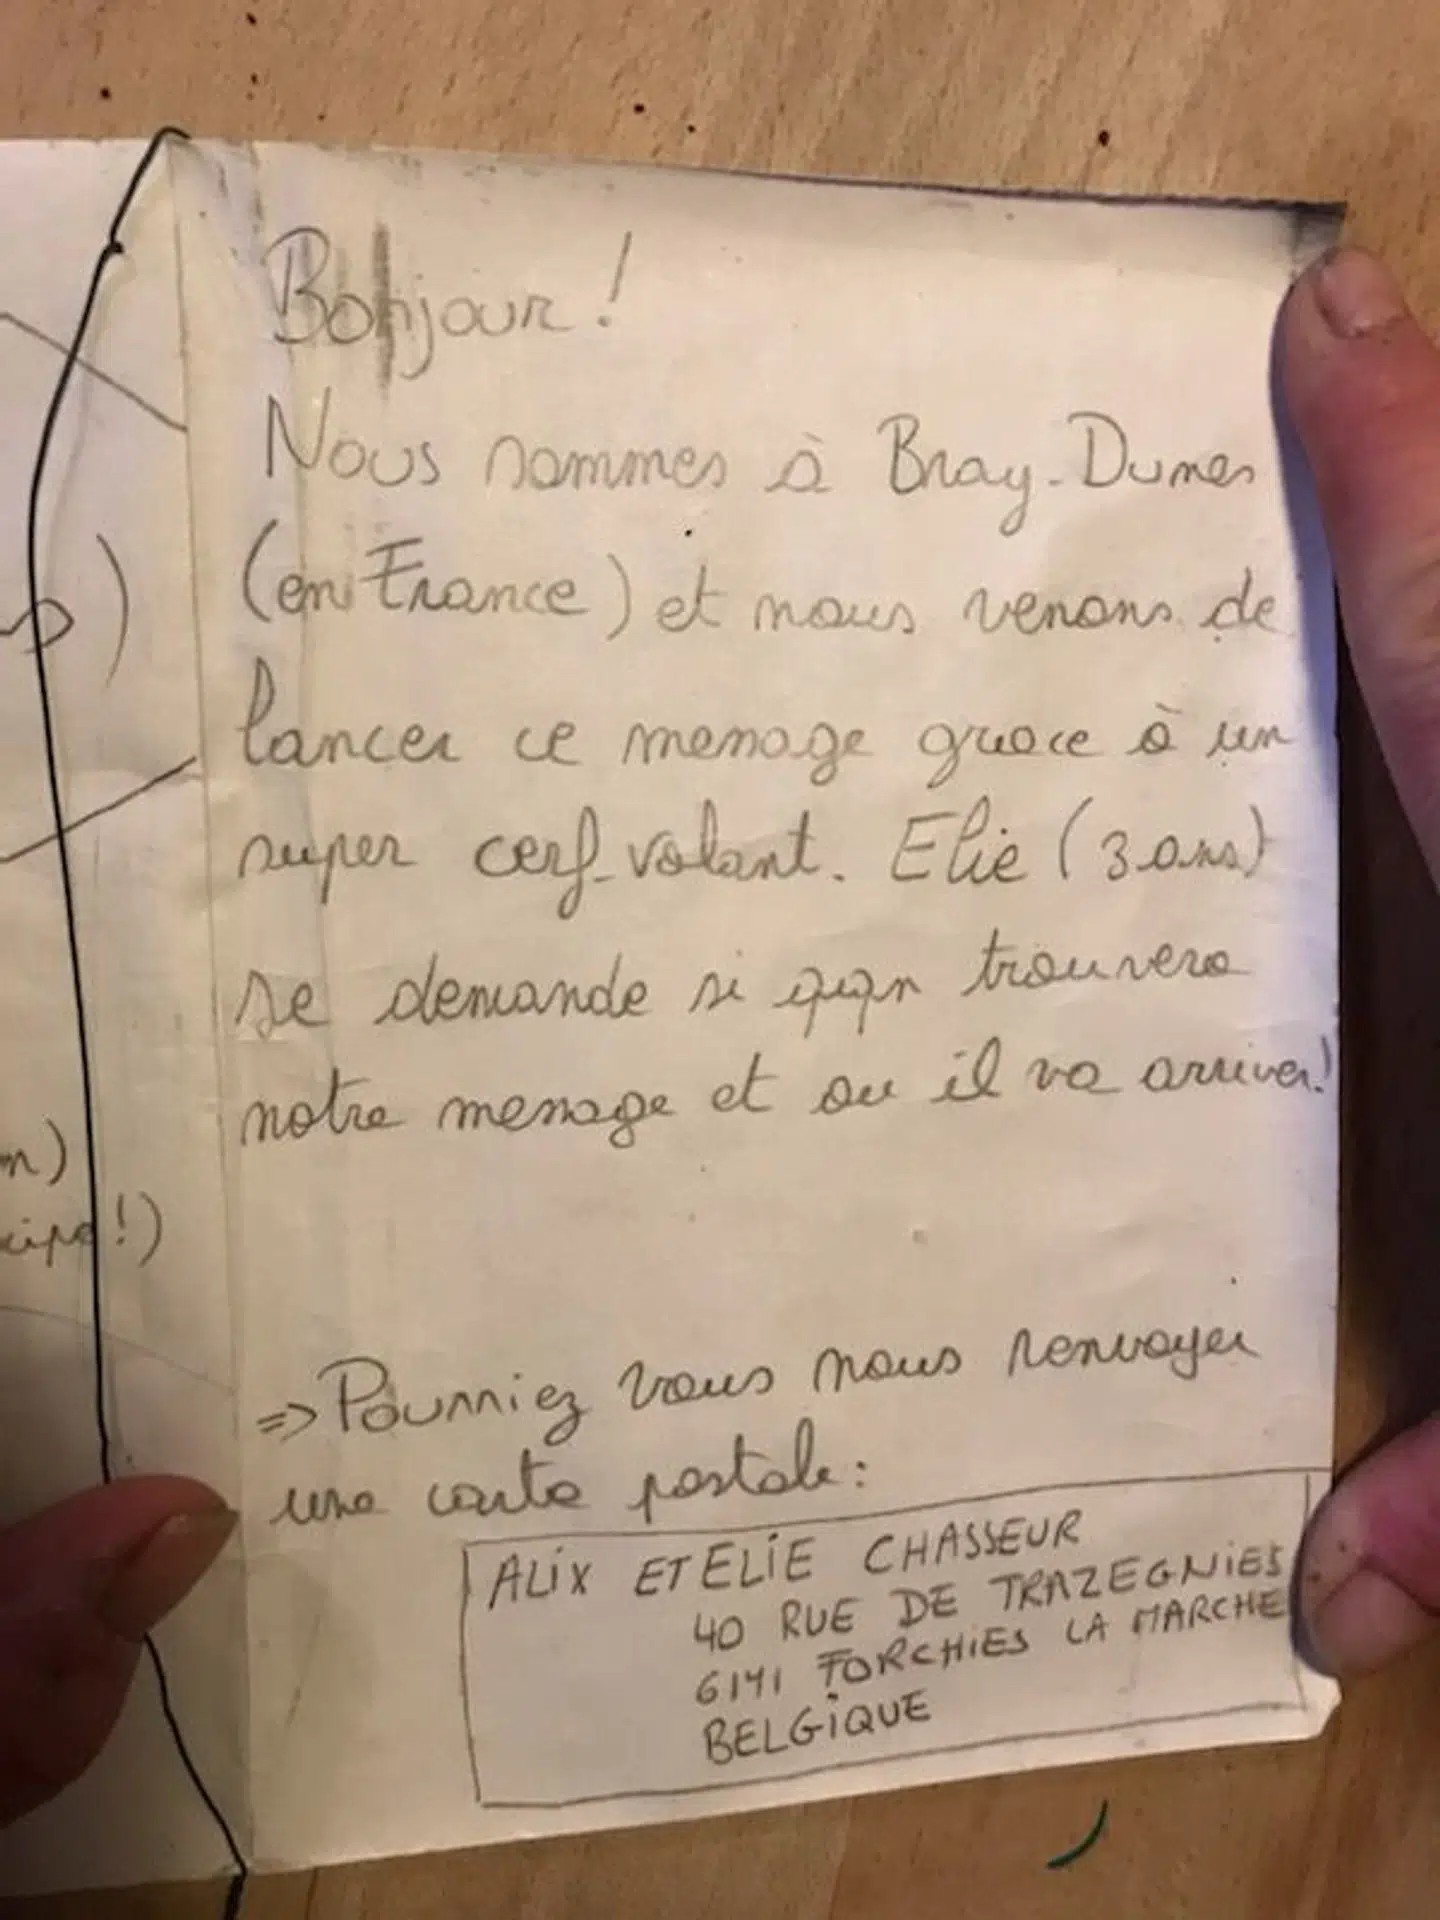 Bonjour !
Nous sommes à Bray-Dunes
(en France) et nous venons de
lancer ce message grace à un
super cerf-volant. Elie (3 ans)
se demande si qqn trouvera
notre message et ou il va arriver!
=> Pourriez vous nous renvoyer
une carte postale :
ALIX ET ELIE CHASSEUR
40 RUE DE TRAZEGNIES
6141 FORCHIES LA MARCHE
BELGIQUE